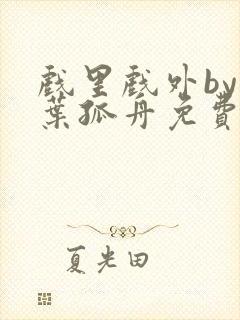 戏里戏外by
葉孤舟免費
夏光田